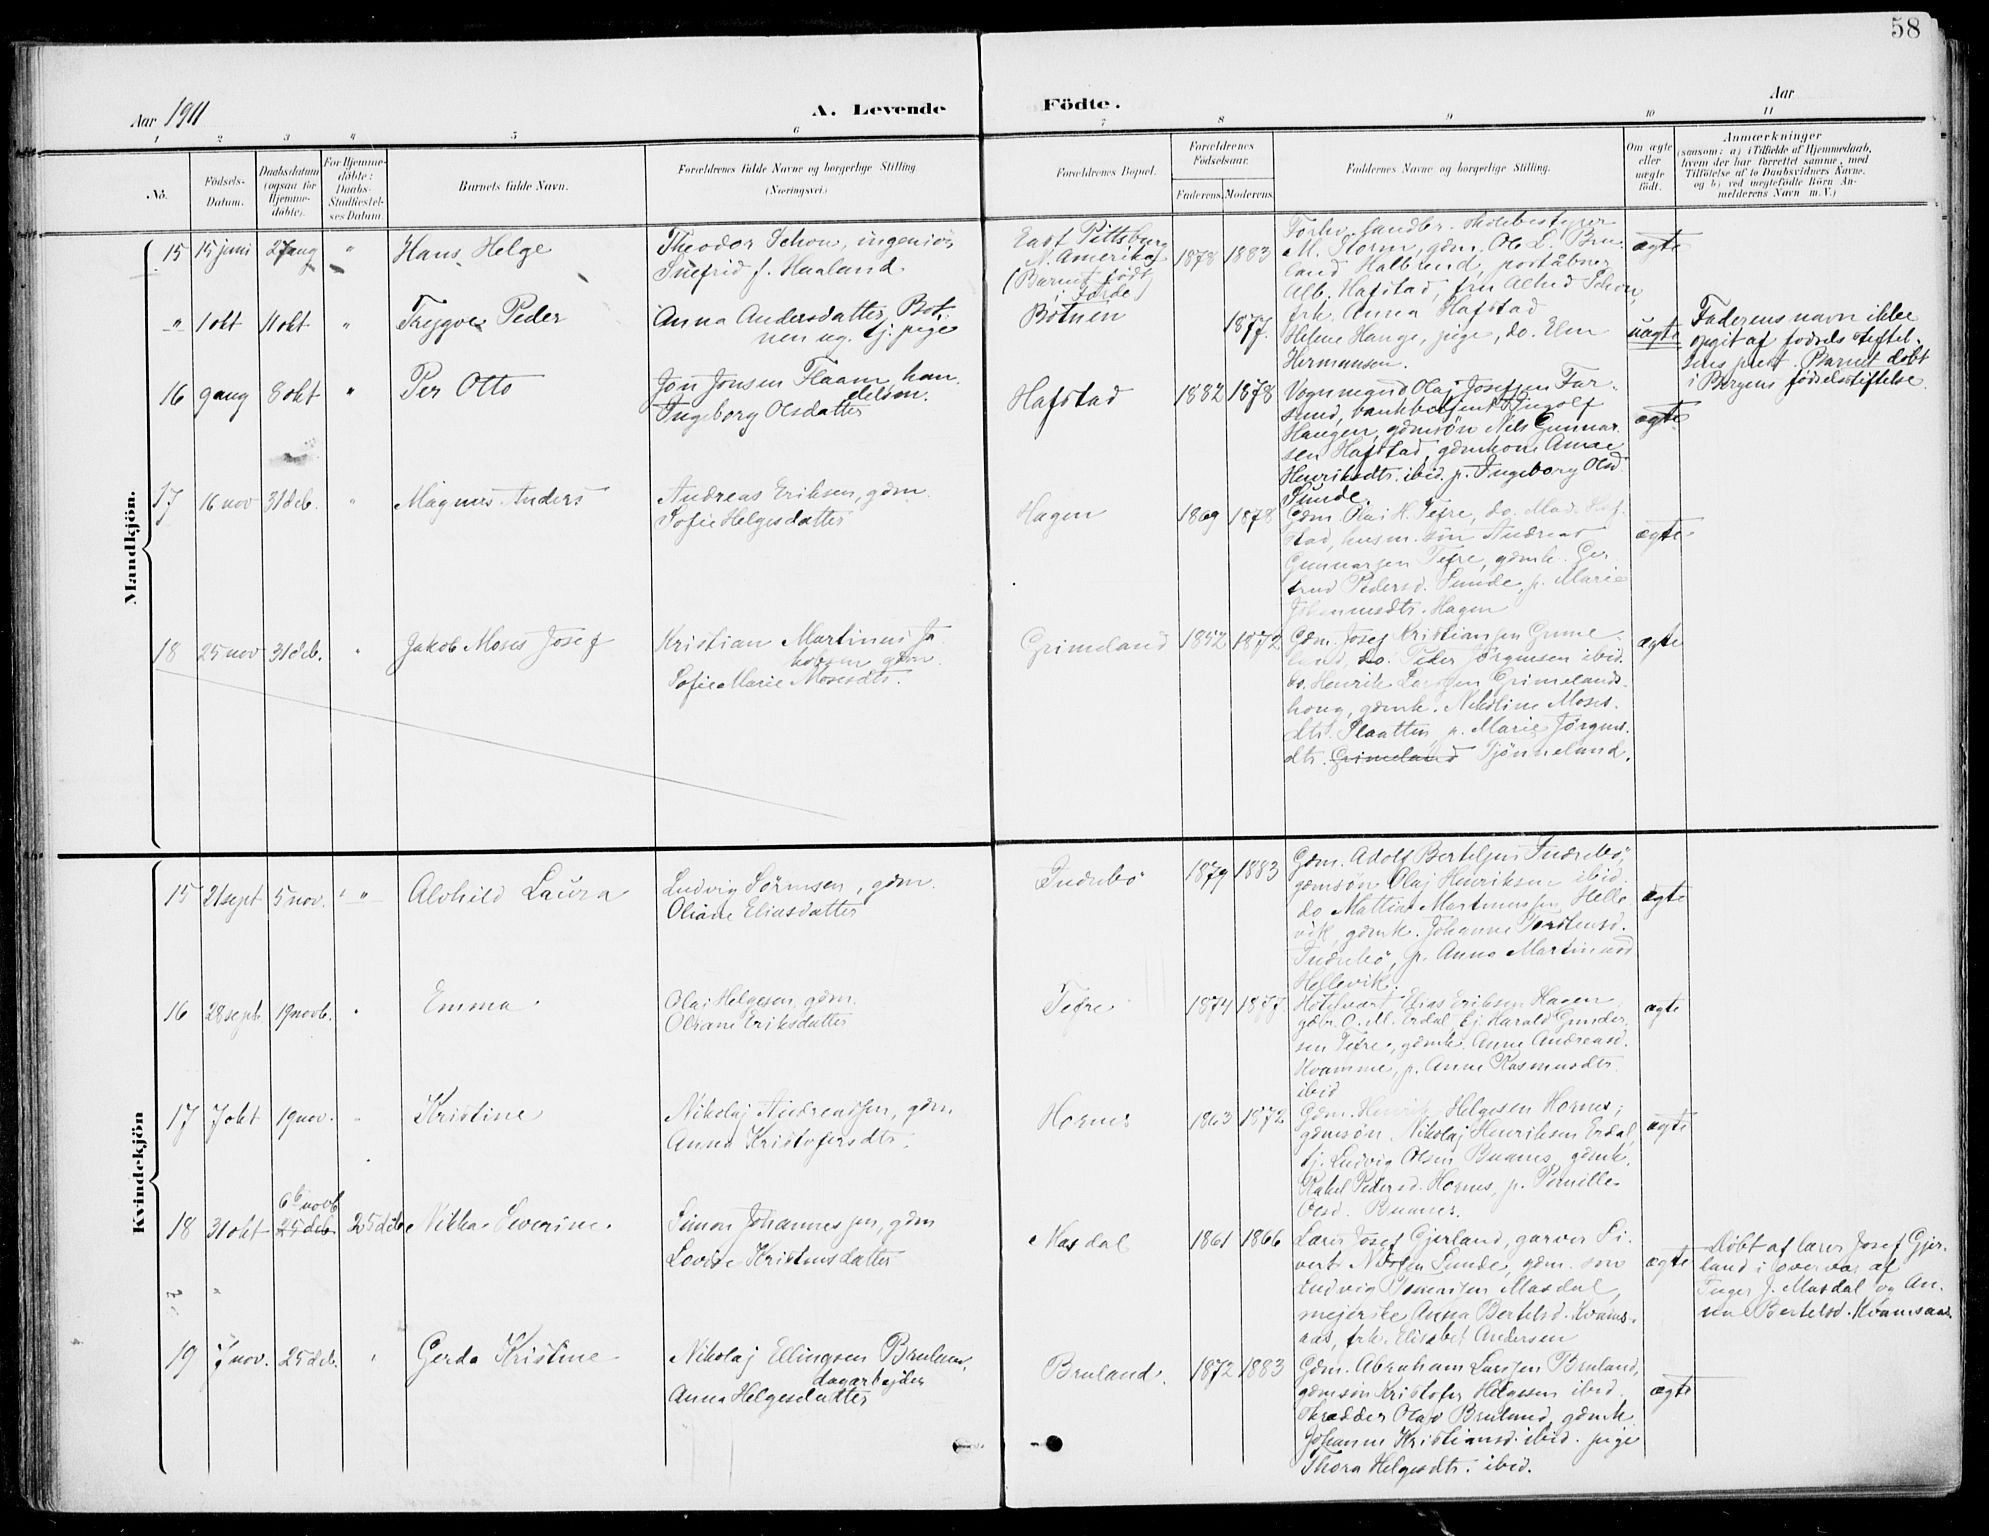 58
Aar 1911
A. Levende
Födte.
Aar
1 2 3 4 5 6 7 8 9 10 11
No.
Födsels-
Datum.
Daabsdatum
(ogsaa for
Hjemme-
døbte).
For Hjemme-
døbte:
Daabs-
Stadfæstel-
ses Datum.
Barnets fulde Navn.
Forældrenes fulde Navne og borgerlige Stilling
(Næringsvei.)
Forældrenes Bopæl.
Forældrenes
Födselsaar.
Faderens. Moderens.
Faddernes Navne og borgerlige Stilling.
Om ægte
eller
uægte
födt.
Anmærkninger
(saasom: a) i Tilfælde af Hjemmedaab,
hvem der har forrettet samme, med
Tilföielse af to Daabsvidners Navne.
og b) ved uægtefödte Börn An-
melderens Navn m. V.)
Mandkjön.
15 15 juni 27 aug " Hans Helge
Theodor Schon, ingeniør
f. Haaland
East Pittsburg
N. Amerika
(Barnet født
i Førde)
1878 1883
Forhv. handler. skolebestyrer
M. Storm, gdm. Ole L. Bru-
land, Halbrend, postaabner
Alb. Hafstad, fru Alhed Schon,
frk. Anna Hafstad
ægte
" 1 okt 11 okt " Trygve Peder
Anna Andersdatter Bot-
nen ug. tj. pige
Botnen
1877.
Helene Hauge, pige, do. Elen
Hermansen.
uægte
Faderens navn ikke
opgit af fødselsstiftel-
sens prest. Barnet døbt
i Bergens fødselsstiftelse
16 9 aug 8 okt " Per Otto
Jon Jonsen Flaam, han-
delsm.
Ingeborg Olsdatter
Hafstad
1882 1878
Vognmand Olaj Josefsen Far-
sund, bankbetjent Ingolf
Haugen, gdmsøn Nils Gunnar-
sen Hafstad, gdmkone Anne
Henriksdtr. ibid. p. Ingeborg Olsd
Sunde.
ægte
17 16 nov 31 deb. " Magnus Anders
Andreas Eriksen, gdm.
Sofie Helgesdatter
Hagen
1869 1878
Gdm. Olai H. Tefre, do. Mad. Haf-
stad, husm. søn Andreas
Gunnarsen Tefre, gdmk. Ger-
trud Pedersd. Sunde, p. Marie
Johannesdtr. Hagen
ægte
18 25 nov 31 deb. " Jakob Moses Josef
Kristian Martinus Ja-
kobsen gdm.
Sofie Marie Mosesdtr.
Grimeland
1852 1872
Gdm. Josef Kristiansen Grime-
land, do. Peder Jørgensen ibid.
do. Henrik Larssen Grimelands-
haug, gdmk. Nikoline Moses-
dtr. Slaatten, p. Marie Jørgens-
dtr. Grimeland Tjønneland.
ægte
Kvindekjön
15 21 sept 5 nov. " Alvhild Laura
Ludvig Sørensen, gdm.
Oliane Eliasdatter
Indrebø
1879 1883
Gdm. Adolf Bertelsen Indrebø,
gdmsøn Olaj Henriksen ibid.
do Mattias Martinussen Helle-
vik, gdmk. Johanne Torstensd.
Indrebø, p. Anna Martinusd
Hellevik.
ægte
16 28 sept. 19 novb. " Emma
Olai Helgesen, gdm.
Oliane Eriksdatter
Tefre
1874 1877.
Hotelvært Elias Eriksen Hagen,
gdbr. O. M. Erdal, tj. Harald Gunder-
sen Tefre, gdmk. Anne Andreasd.
Kvamme, p. Anne Rasmusdtr
ibid
ægte
17 7 okt 19 nov. " Kristine
Nikolaj Andreassen, gdm
Anna Kristofersdtr.
Hornes
1863 1872
Gdm. Henrik Helgesen Hornes,
gdmsøn Nikolaj Henriksen Erdal,
tj. Ludvig Olsen Buanes, gdmk.
Rakel Pedersd. Hornes, p. Pernille
Olsd. Buanes.
ægte
18 31 okt 6te novb 25 deb 25 deb. Nikka Severine.
Simon Johannessen, gdm
Lovise Kristensdatter
Masdal
1861 1866
Lærer Josef Gjerland, garver Si-
vert Nilsen Sunde, gdm. søn
Ludvig Simonsen Masdal,
mejerske Anna Bertelsd. Kvams-
aas, frk. Elisabet Andersen
ægte
Døbt af lærer Josef Gjer-
land i overvær af
Inger J. Masdal og An-
na Bertelsd. Kvamsaas
19 7 nov. 25 deb. " Gerda Kristine
Nikolaj Ellingsen Bruland,
dagarbejder
Anna Helgesdatter
Bruland.
1872 1883
Gdm. Abraham Larssen Bruland,
gdmsøn Kristofer Helgesen ibid.
skrædder Olav Bruland, gdmk.
Johanne Kristiansd. ibid. pige
Thora Helgesdtr. ibid.
ægte